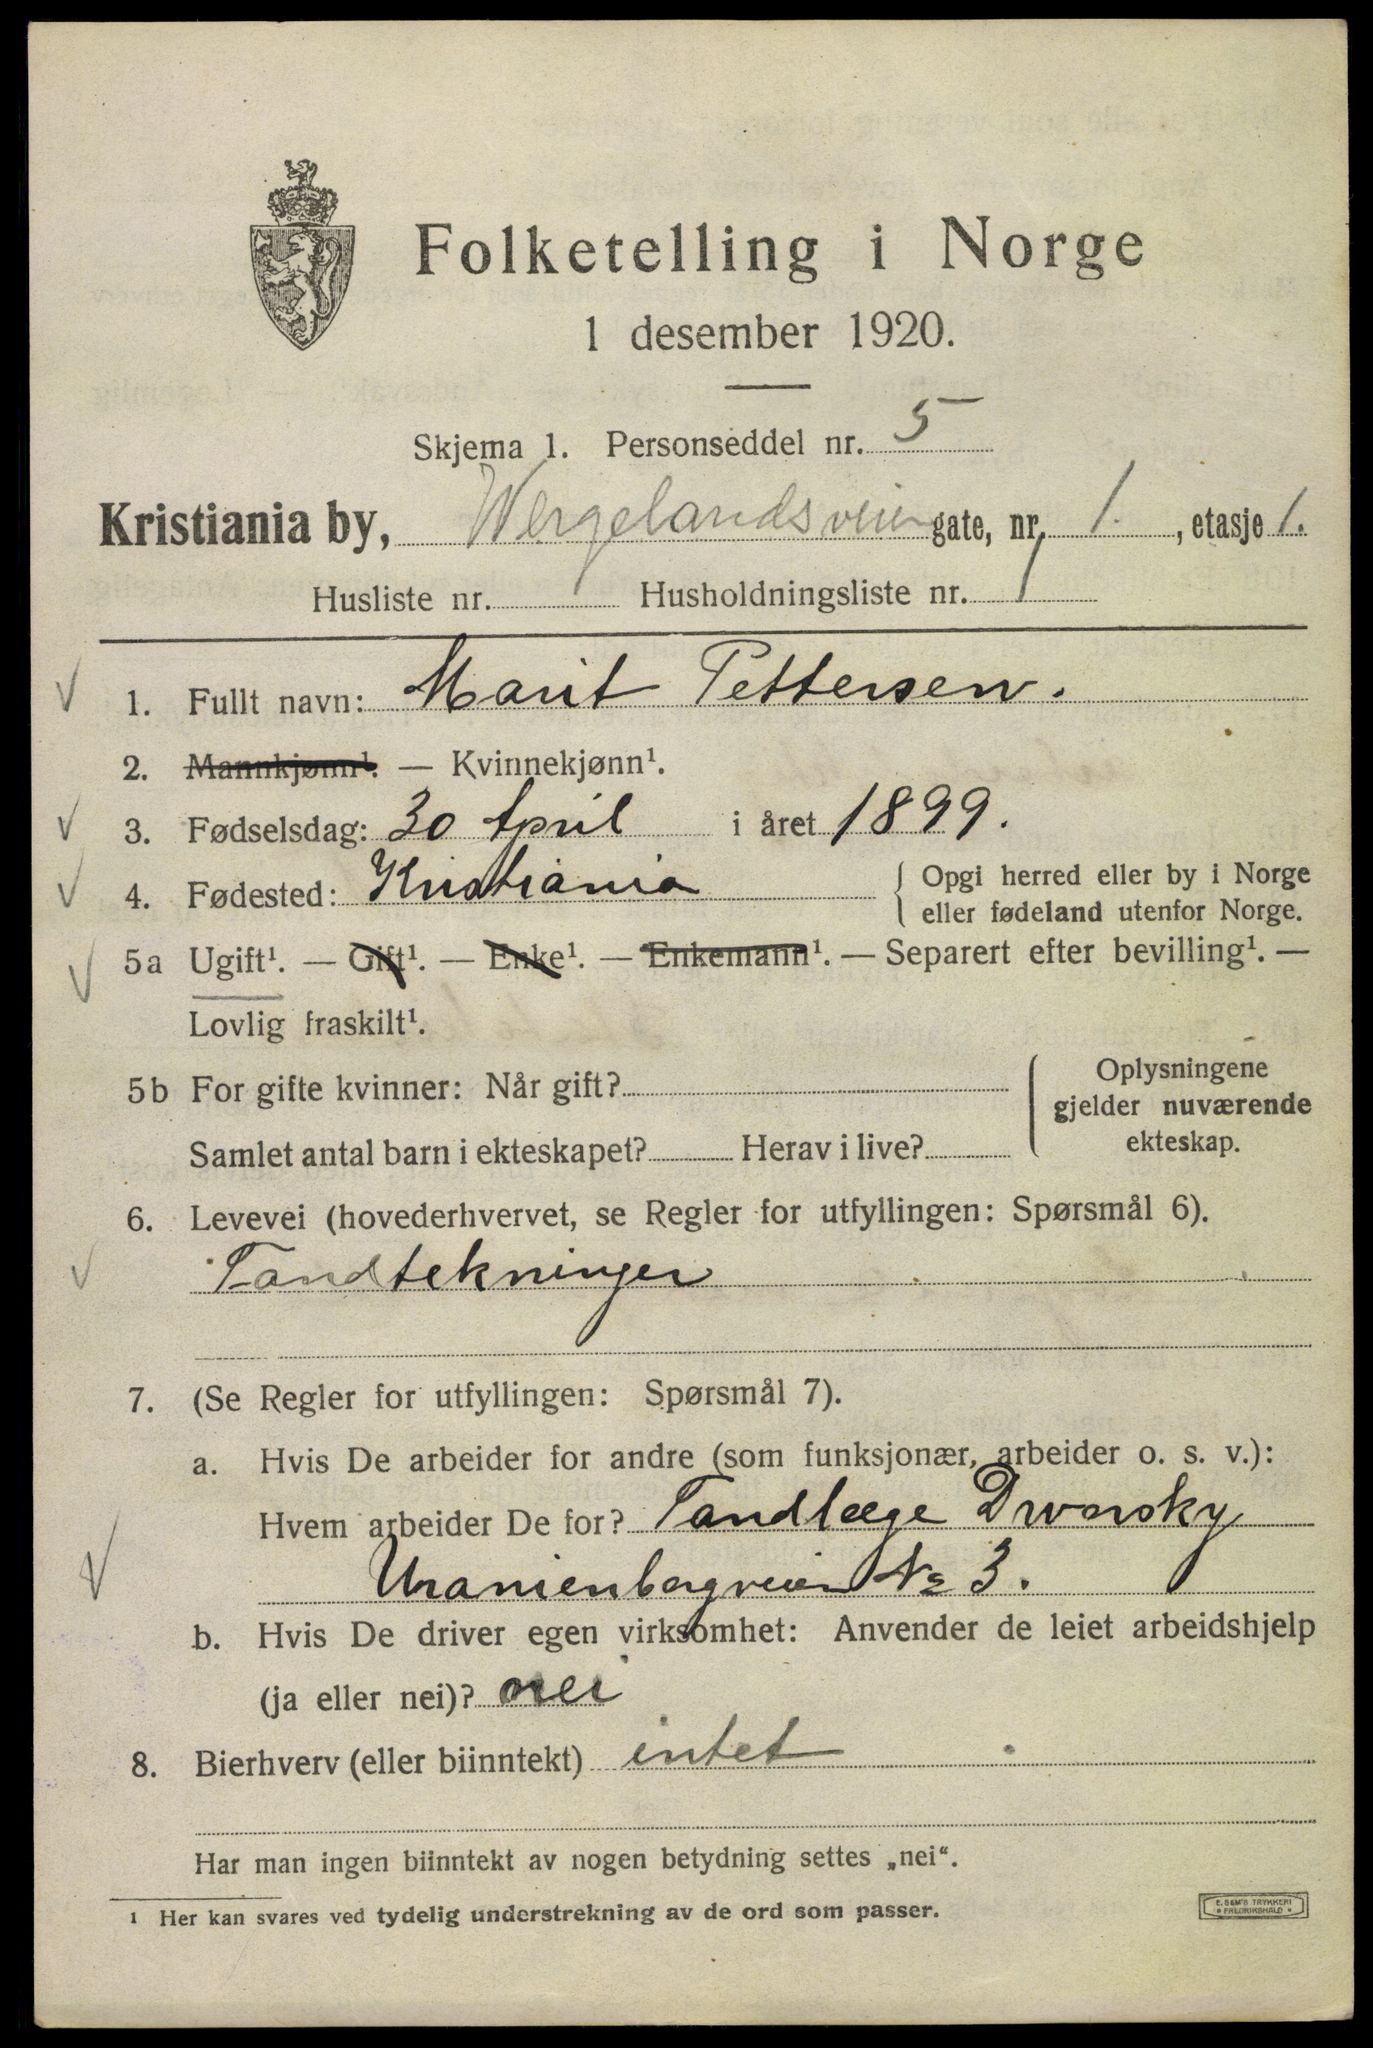 Folketelling i Norge
1 desember 1920.
Skjema 1. Personseddel nr. 5
Kristiania by, Wergelandsveien gate, nr. 1. , etasje 1.
Husliste nr. Husholdningsliste nr. 1
1. Fullt navn: Marit Pettersen.
2. Mannkjønn¹. — Kvinnekjønn¹.
3. Fødselsdag: 30 April i året 1899.
4. Fødested: Kristiania
Opgi herred eller by i Norge
eller fødeland utenfor Norge.
5a Ugift¹. — Gift¹. — Enke¹. — Enkemann¹. — Separert efter bevilling¹. —
Lovlig fraskilt¹.
5b For gifte kvinner: Når gift?
Samlet antal barn i ekteskapet? Herav i live?
Oplysningene
gjelder nuværende
ekteskap.
6. Levevei (hovederhvervet, se Regler for utfyllingen: Spørsmål 6).
Tandtekninger
7. (Se Regler for utfyllingen: Spørsmål 7).
a. Hvis De arbeider for andre (som funksjonær, arbeider o. s. v.):
Hvem arbeider De for? Tandlæge Dworsky
Uranienborgveien No 3.
b. Hvis De driver egen virksomhet: Anvender de leiet arbeidshjelp
(ja eller nei)? nei
8. Bierhverv (eller biinntekt) intet
Har man ingen biinntekt av nogen betydning settes „nei“.
1 Her kan svares ved tydelig understrekning av de ord som passer.
E. SEM'S TRYKKERI
FREDRIKSHALD